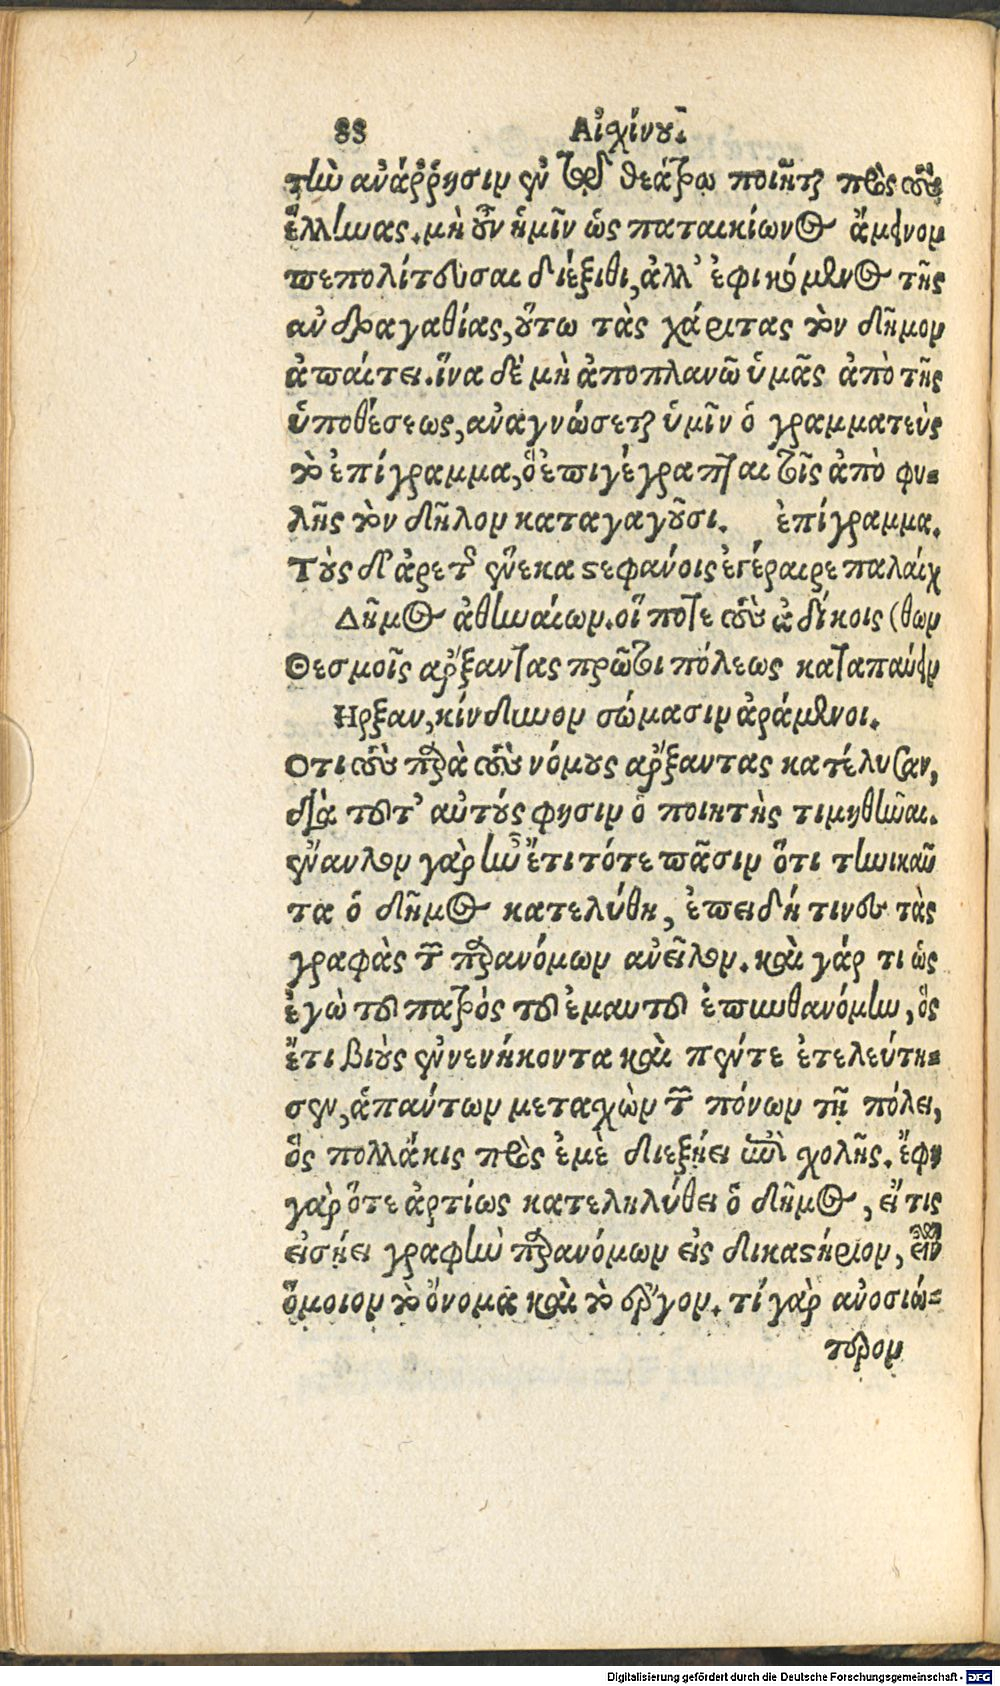 88 Αἰσχίνου
τὴν ἀνάῤῥησιν ἐν τῷ θεάτρῳ ποιῆται πρὸς τοὺς
ἕλληνας. μὴ οὖν ἡμῖν ὡς παταικίωνος ἄμεινον
πεπολίτευσαι διέξιθι, ἀλλ' ἐφικόμενος τῆς
ἀνδραγαθίας, οὕτω τὰς χάριτας τὸν δῆμον
ἀπαίτει. ἵνα δὲ μὴ ἀποπλανῶ ὑμᾶς ἀπὸ τῆς
ὑποθέσεως, ἀναγνώσεται ὑμῖν ὁ γραμματεὺς
τὸ ἐπίγραμμα, ὃ ἐπιγέγραπται τοῖς ἀπὸ φυ-
λῆς τὸν δῆμον καταγαγοῦσι. ἐπίγραμμα.
Τοὺς δ' ἀρετῆς ἕνεκα στεφάνοις ἐγέραιρε παλαίχ
Δῆμος ἀθηναίων. οἵ ποτε τοὺς ἀδίκοις (θων
Θεσμοῖς ἄρξαντας πρῶτοι πόλεως καταπαύειν
Ηρξαν, κίνδυνον σώμασιν ἀράμενοι.
Οτι τοὺς παρὰ τοὺς νόμους ἄρξαντας κατέλυσαν,
διὰ τοῦτ' αὐτούς φησιν ὁ ποιητὴς τιμηθῆναι.
ἔναυλον γὰρ ἦν ἔτι τότε πᾶσιν ὅτι τηνικαῦ
τα ὁ δῆμος κατελύθη, ἐπειδή τινες τὰς
γραφὰς τῶν παρανόμων ἀνεῖλον. καὶ γάρ τι ὡς
ἐγὼ τοῦ πατρὸς τοῦ ἐμαυτοῦ ἐπυνθανόμην, ὃς
ἔτι βιοὺς ἐνενήκοντα καὶ πέντε ἐτελεύτη-
σεν, ἁπάντων μετασχὼν τῶν πόνων τῇ πόλει,
ὃς πολλάκις πρὸς ἐμὲ διεξῄει ἐπὶ σχολῆς. ἔφη
γὰρ ὅτε ἀρτίως κατεληλύθει ὁ δῆμος, εἴ τις
εἰσῄει γραφὴν παρανόμων εἰς δικαστήριον, εἶναι
ὅμοιον τὸ ὄνομα καὶ τὸ ἔργον. τί γὰρ ἀνοσιώ-
τερον
Digitalisierung gefördert durch die Deutsche Forschungsgemeinschaft - DFG